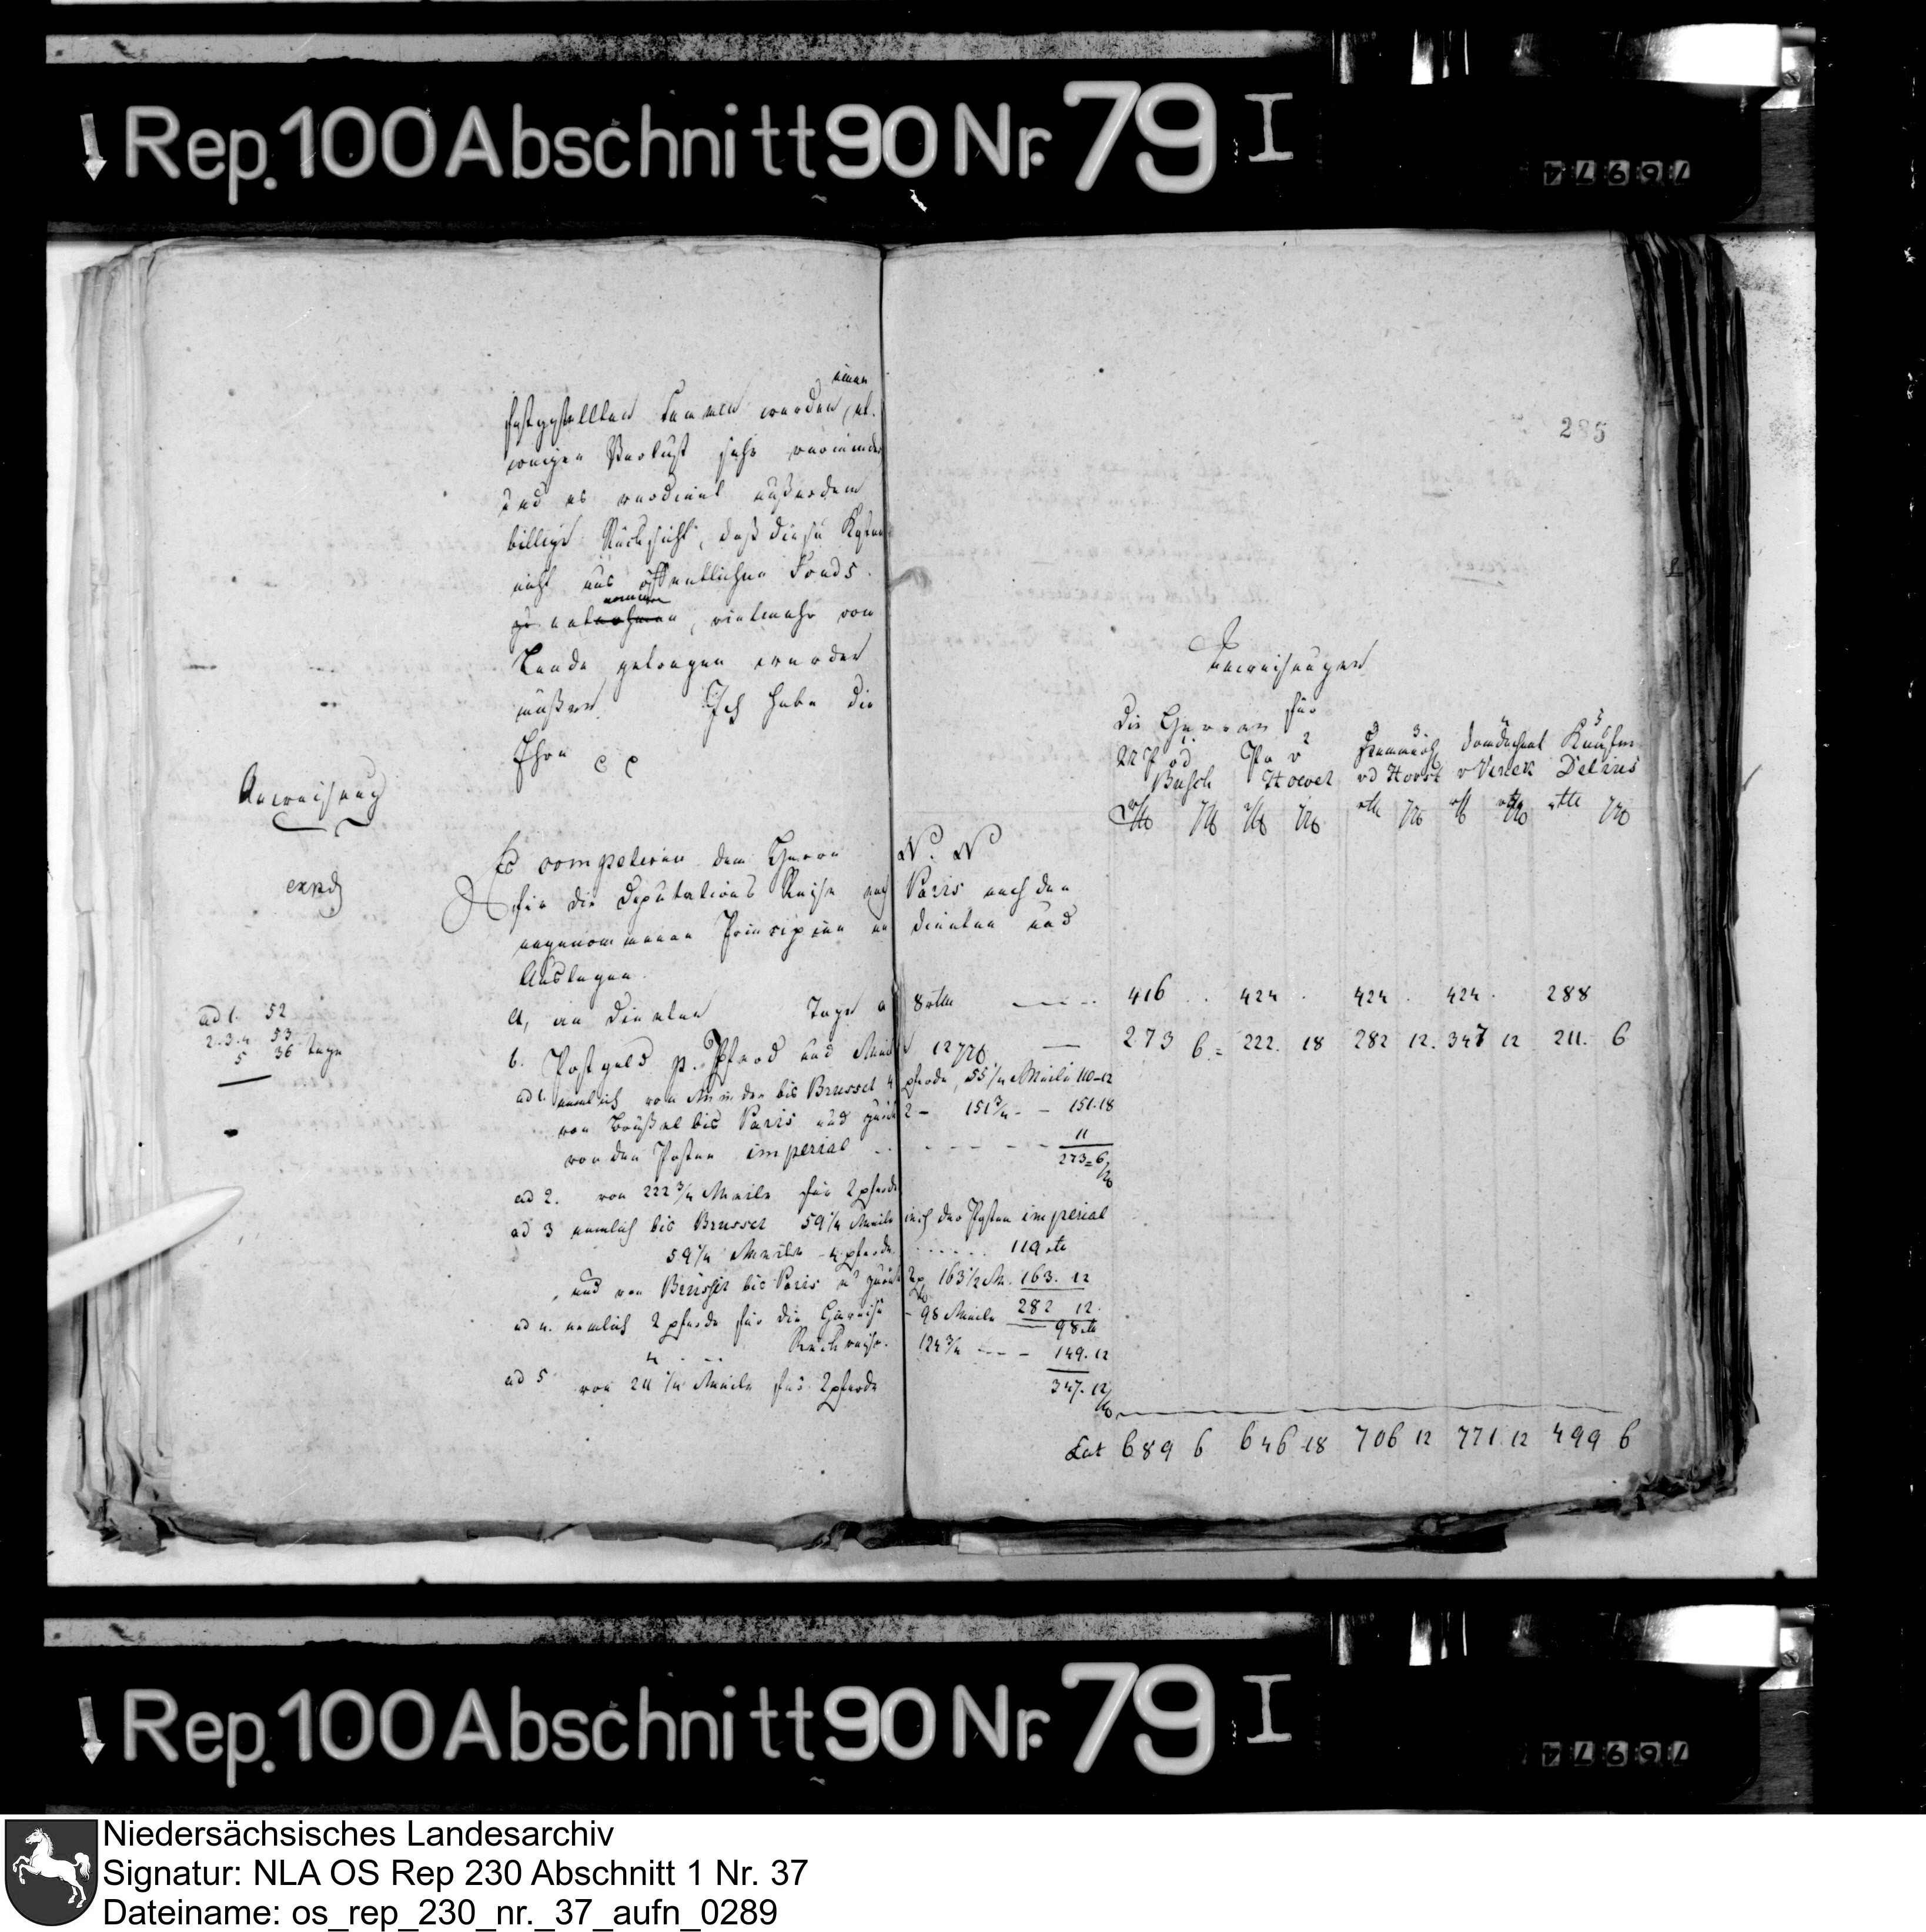 Rep. 100 Abschnitt 90 Nr. 79 I
76974
einen
festgestellten Summen werden, et-
wanigen Verlust sehr vermindern
und es verdient außerdem
billige Rücksicht, daß diese Kosten
nicht aus öffentlichen Fonds
genommen, vielmehr vom
Lande getragen werden
müßen. Ich habe die
Ehre
Anweisung
exped
Es competiren dem Herrn N. N
für die Deputations Reise nach Paris nach den
angenommenen Prinzipien an Diaeten und
Auslagen.
ad 1. 52
2.3.4. 53
5 36 Tage
a, an Diaeten Tage a 8 rthl
b. Postgeld p. Pferd und Meile 12 ggr
ad 1. nemlich von Minden bis Brussel 4 pferde, 55 1/4 Meile 110-12
von Brüßel bis Paris und zurück 2 - 151 3/4 - - 151.18
von den Posten imperial 11
273=6
ad 2. von 222 3/4 Meile für 2 pferde
ad 3 nemlich bis Brussel 59 1/2 Meile incl der Posten imperial
59 1/2 Meile - 4 pferde 119 rtl
und von Brüssel bis Paris u zurück 2 p 163 1/2 M. 163. 12
282 12.
ad 4. nemlich 2 pferde für die Hinreise - 98 Meile 98 rtl
4 - - Rückreise. 124 3/4 - - - 149.12
347.12
ad 5 von 211 1/4 Meile für 2 pferde
285
Anweisungen
für
die Herren
1 2 3 4 5
Busch v Hoevel vd Horst v Vinck Delius
Domdechant Kaufm
416 . . 424 . 424 . 424 . 288
273 6. = 222. 18 282 12. 347 12 211. 6
Lat 689 6 646 18 706 12 771. 12 499 6
Rep. 100 Abschnitt 90 Nr. 79 I
76974
Niedersächsisches Landesarchiv
Signatur: NLA OS Rep 230 Abschnitt 1 Nr. 37
Dateiname: os_rep_230_nr._37_aufn_0289